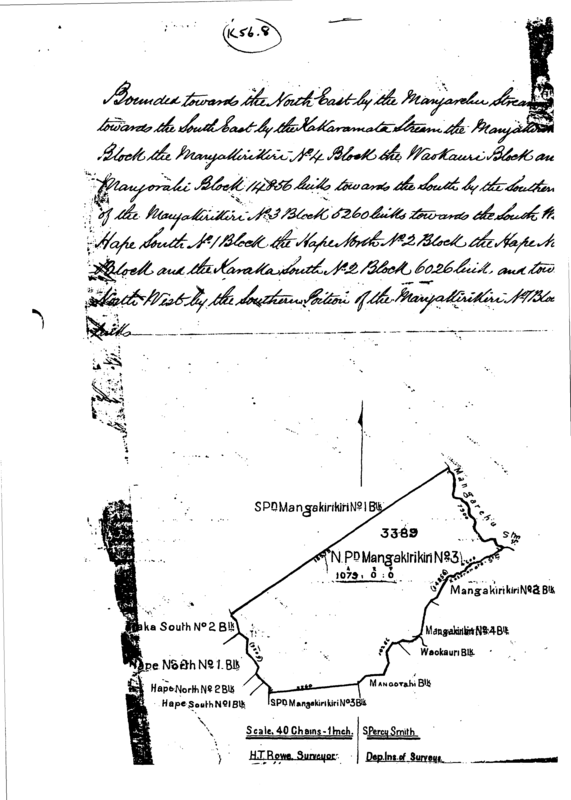 K56.8
Bounded towards the North East by the Mangarehu Stream
towards the South East by the Kakaramata Stream the
Block the Mangakirikiri No 4 Block the Waokauri Block an
Mangorahi Block 14856 links towards the South by the Southern
of the Mangakirikiri No 3 Block 5260 links towards the South W
Hape South No 1 Block the Hape North No 2 Block the Hape N
Block and the Karaka South No 2 Block 6026 links, and tow
North West by the Southern Portion of the Mangakirikiri No 1 Blo
links
Mangarehu
SPD Mangakirikiri No 1 Blk
3389
N.PD Mangakirikiri No 3
1079. 0. 0
Mangakirikiri No 2 Blk
aka South No 2 Blk
Mangakirikiri No 4 Blk
Waokauri Blk
Hape North No 1. Blk
Mangorahi Blk
Hape North No 2 Blk
Hape South No 1 Blk
SPD Mangakirikiri No 3 Blk
Scale. 40 Chains - 1 Inch.
S Percy Smith
H.T. Rowe. Surveyor.
Dep. Ins. of Surveys.